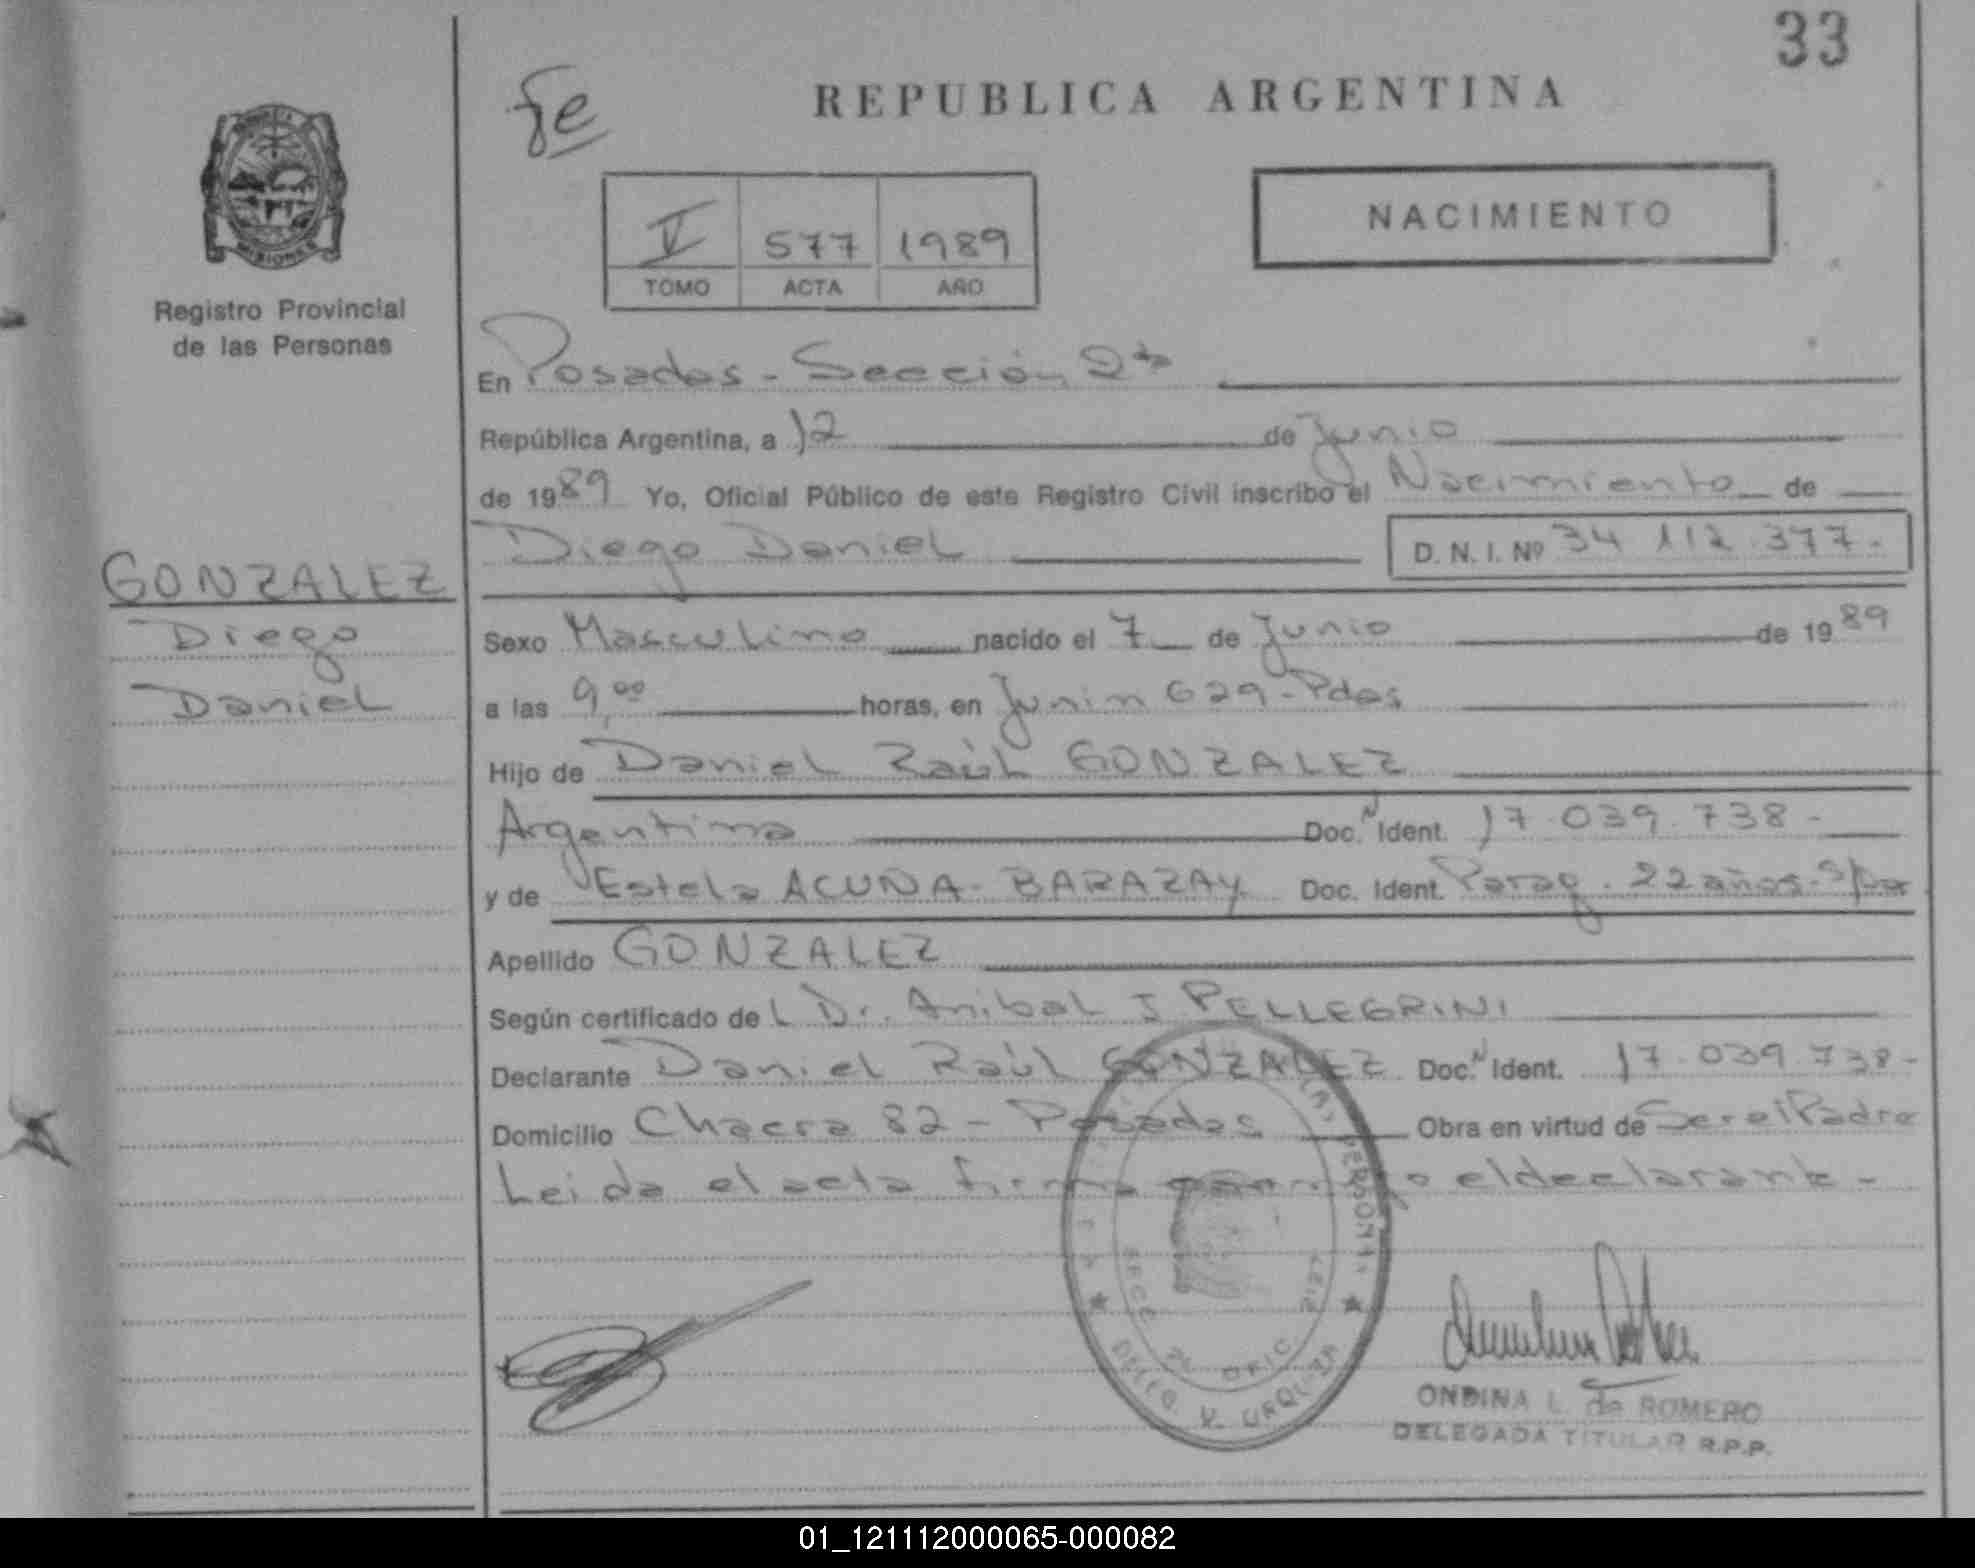 33
fe
REPUBLICA ARGENTINA
MISIONES
Registro Provincial
de las Personas
V 577 1989
TOMO ACTA AÑO
NACIMIENTO
En Posadas - Sección 2ª
República Argentina, a 12 de Junio
de 1989 Yo, Oficial Público de este Registro Civil inscribo el Nacimiento de
Diego Daniel D. N. I. Nº 34 112.377.-
GONZALEZ
Diego
Daniel
Sexo Masculino nacido el 7 de Junio de 1989
a las 9,00 horas, en Junin 629 - Pdas
Hijo de Daniel Raúl GONZALEZ
Argentino Doc. N Ident. 17.039.738-
y de Estela ACUÑA - BARAZAY Doc. Ident. Parag. 22 años -
Apellido GONZALEZ
Según certificado del Dr. Anibal J PELLEGRINI
Declarante Daniel Raúl GONZALEZ Doc. N Ident. 17.039.738-
Domicilio Chacra 82 - Posadas Obra en virtud de Ser el Padre
Leida el acta firma conmigo el declarante -
ONDINA L. de ROMERO
DELEGADA TITULAR R.P.P.
DELEG. V. URQUIZA
01_121112000065-000082